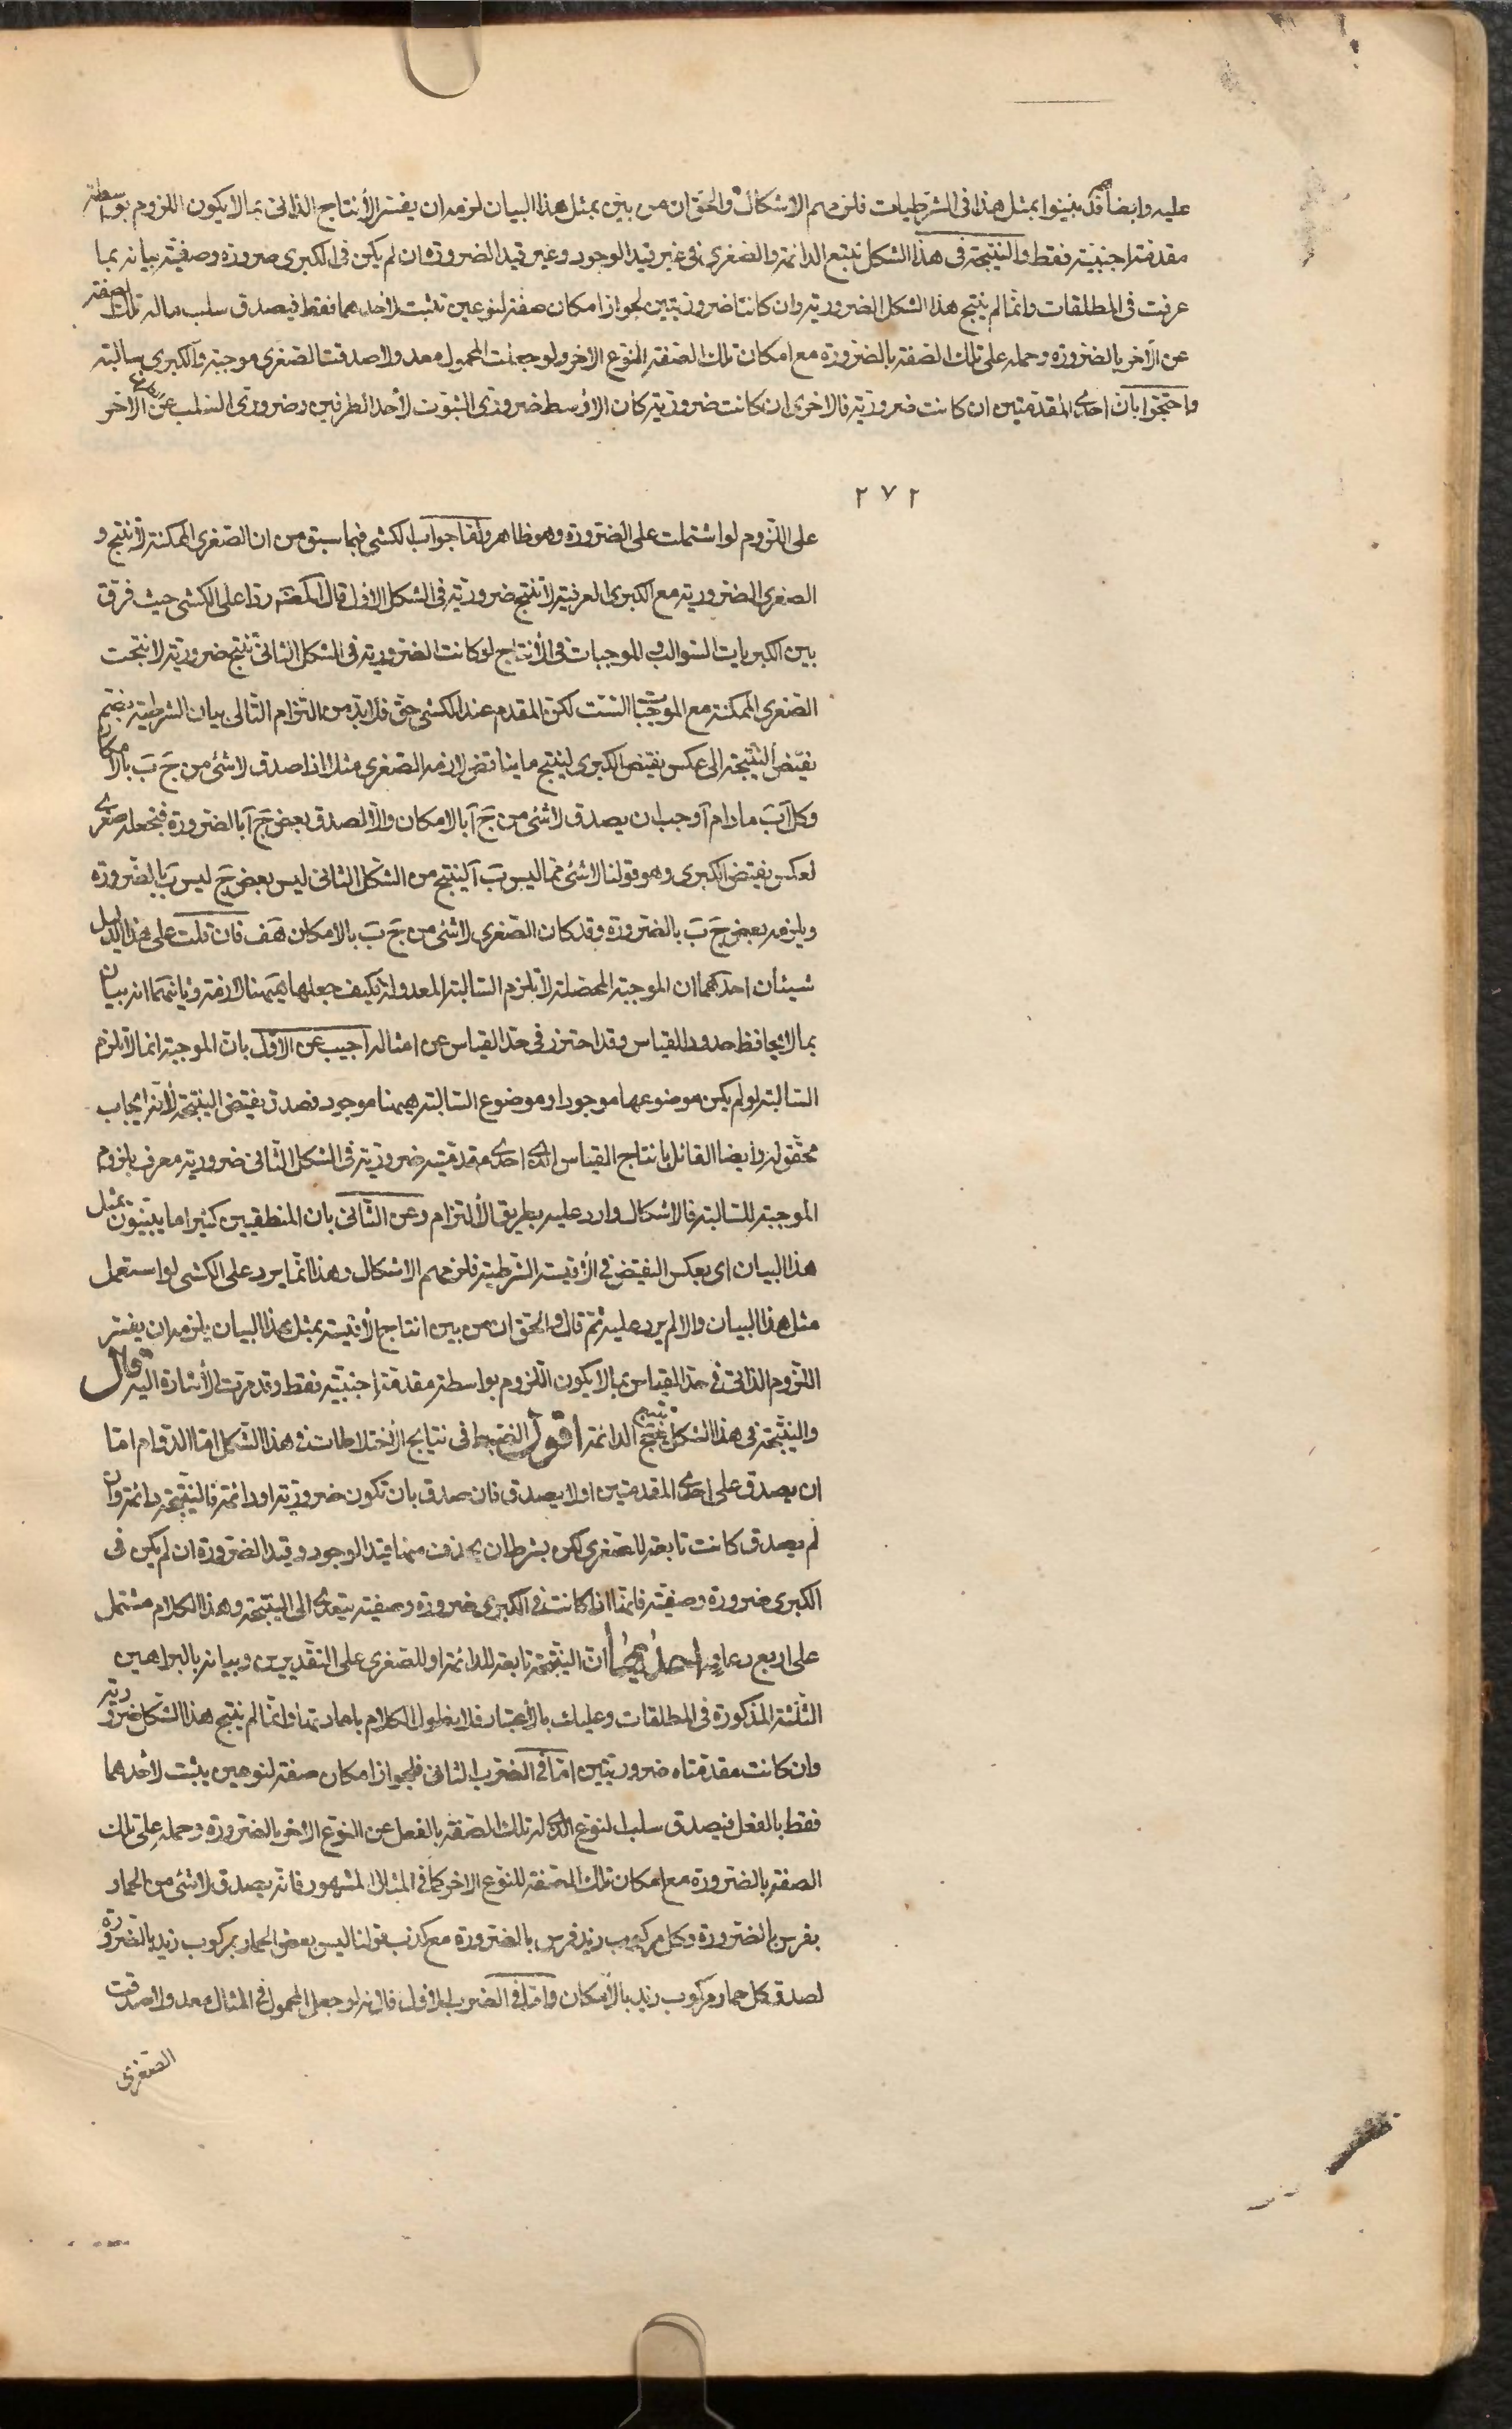 عليه وايضا قد بينوا بمثل هذا فى الشرطيات فلزمهم الاشكال والحق ان من بين بمثل هذا البيان لزمه ان يفسر الأنتاج الذاتى بما لا يكون اللزوم بواسطة
مقدمة اجنبية فقط والنتيجة فى هذا الشكل تتبع الدائمة والصغرى فى غير قيد الوجود وغير قيد الضرورة ان لم يكن فى الكبرى ضرورة وصفية بيانه بما
عرفت فى المطلقات وانما لم ينتج هذا الشكل الضرورية وان كانتا ضروريتين لجواز امكان صفة لنوعين تثبت لأحدهما فقط فيصدق سلب ماله تلك الصفة
عن الآخر بالضرورة وحمله على تلك الصفة بالضرورة مع امكان تلك الصفة للنوع الاخر ولو جعلت المحمول معدولا صدقت الصغرى موجبة والكبرى سالبة
واحتجوا بان احدى المقدمتين ان كانت ضرورية فالاخرى ان كانت ضرورية كان الاوسط ضرورى الثبوت لأحد الطرفين وضرورى السلب عن الآخر
٢٧٢
على اللزوم لو اشتملت على الضرورة وهو ظاهر ولنا جواب الكشى فيما سبق من ان الصغرى الممكنة لا تنتج و
الصغرى الضرورية مع الكبرى العرفية لا تنتج ضرورية فى الشكل الاول قال المصنف ردا على الكشى حيث فرق
بين الكبريات السوالب والموجبات فى الأنتاج لو كانت الضرورية فى الشكل الثانى تنتج ضرورية لانتجت
الصغرى الممكنة مع الموجبات الست لكن المقدم عند الكشى حق فلا بد من التزام التالى بيان الشرطية بضم
نقيض النتيجة الى عكس نقيض الكبرى لينتج ما يناقض لازمه الصغرى مثلا اذا صدق لا شئ من ج ب بالامكان
وكل آ ب ما دام آ وجب ان يصدق لا شئ من ج آ بالامكان والا لصدق بعض ج آ بالضرورة فنجعله صغرى
لعكس نقيض الكبرى وهو قولنا لا شئ مما ليس ب آ لينتج من الشكل الثانى ليس بعض ج ليس ب بالضرورة
ويلزمه بعض ج ب بالضرورة وقد كان الصغرى لا شئ من ج ب بالامكان هف فان قلت على هذا الدليل
شيئان احدهما ان الموجبة المحصلة لا تلزم السالبة المعدولة فكيف جعلها ههنا لازمة وثانيهما انه بيان
بما لا يحافظ حدود القياس وقد احترز فى حد القياس عن امثاله اجيب عن الاول بان الموجبة انما لا تلزم
السالبة لو لم يكن موضوعها موجودا وموضوع السالبة ههنا موجود فصدق نقيض النتيجة لأنه ايجاب
محقق له وأيضا القائل بانتاج القياس الذى احدى مقدمتيه ضرورية فى الشكل الثانى ضرورية معرف بلزوم
الموجبة للسالبة فالاشكال وارد عليه بطريق الألتزام وعن الثانى بان المنطقيين كثيرا ما يبينون بمثل
هذا البيان اى بعكس النقيض فى الأقيسة الشرطية فلزمهم الاشكال وهذا انما يرد على الكشى لو استعمل
مثل هذا البيان والا لم يرد عليه ثم قال والحق ان من بين انتاج الأقيسة بمثل هذا البيان يلزمه ان يفسر
اللزوم الذاتى فى حد القياس بما لا يكون اللزوم بواسطة مقدمة اجنبية فقط وقد مرت الأشارة اليه قال
والنتيجة فى هذا الشكل تتبع الدائمة اقول الضبط فى نتايج الأختلاطات فى هذا الشكل اما الدوام اما
ان يصدق على احدى المقدمتين او لا يصدق فان صدق بان تكون ضرورية او دائمة فالنتيجة دائمة وان
لم يصدق كانت تابعة للصغرى لكن بشرط ان يحذف منها قيد الوجود وقيد الضرورة ان لم يكن فى
الكبرى ضرورة وصفية فانها اذا كانت فى الكبرى ضرورة وصفية يتعدى الى النتيجة وهذا الكلام مشتمل
على اربع دعاو احداها ان النتيجة تابعة للدائمة او للصغرى على التقديرين وبيانه بالبراهين
الثلثة المذكورة فى المطلقات وعليك بالأعتبار فلا نطول الكلام باعادتها وانما لم ينتج هذا الشكل ضرورية
وان كانت مقدمتاه ضروريتين اما فى الضرب الثانى فلجواز امكان صفة لنوعين يثبت لأحدهما
فقط بالفعل فيصدق سلب النوع الذى له تلك الصفة بالفعل عن النوع الاخر بالضرورة وحمله على تلك
الصفة بالضرورة مع امكان تلك الصفة للنوع الاخر كما فى المثال المشهور فانه يصدق لا شئ من الحمار
بفرس بالضرورة وكل مركوب زيد فرس بالضرورة مع كذب قولنا ليس بعض الحمار بمركوب زيد بالضرورة
لصدق كل حمار مركوب زيد بالأمكان واما فى الضرب الاول فلانه لو جعل المحمول فى المثال معدولا صدقت
الصغرى